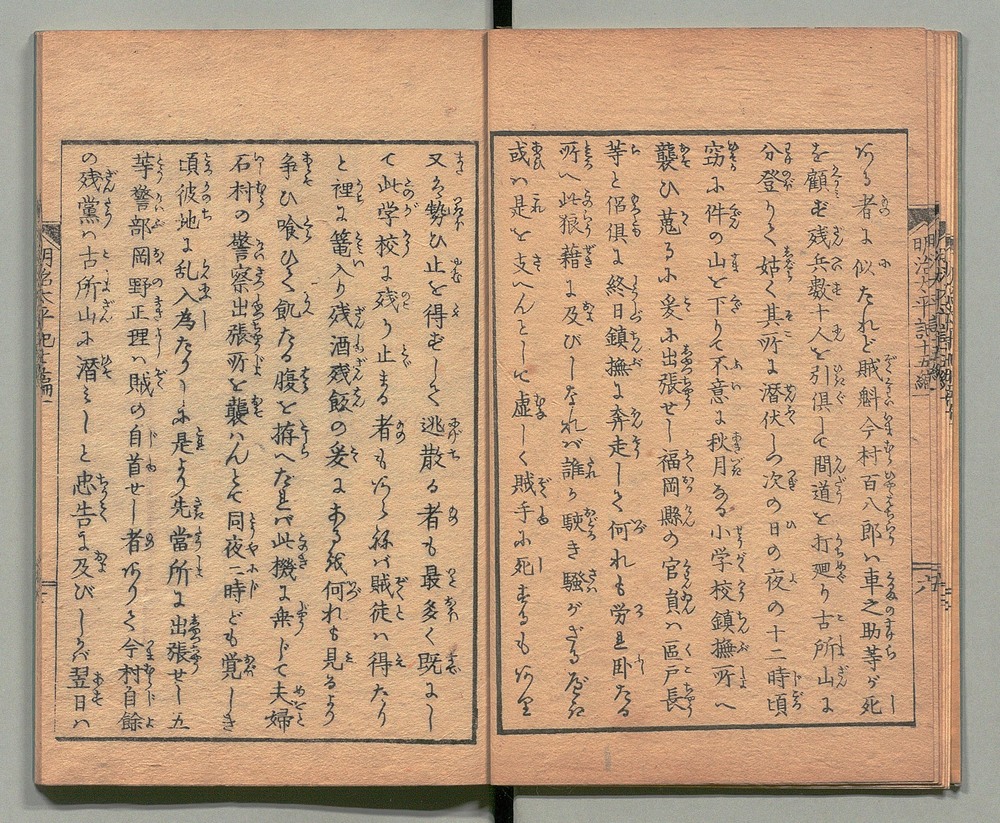 ある者に似たれど賊魁今村百八郎ハ車之助等が死
を顧ず残兵数十人を引倶して間道を打廻り古所山に
分登りて姑く其所に潜伏しつ次の日の夜の十二時頃
窃に件の山を下りて不意に秋月なる小学校鎮撫所へ
襲ひ蒐るに爰に出張せし福岡縣の官員ハ區戸長
等と倶に終日鎮撫に奔走して何れも労れ臥たる
所へ此狼藉に及びしなれバ誰か駭き騒がざる
或ハ是を支へんとして虚しく賊手に死するもあり
又ハ勢ひ止を得ずして逃散る者も最多く既にし
て此学校に残り止まる者もあらねバ賊徒ハ得たり
と裡に篭入り残酒残飯の爰にあるを何れも見るより
争ひ喰ひて飢たる腹を拵へたれバ此機に乗じて夫婦
石村の警察出張所を襲ハんとて同夜二時ども覚しき
頃彼地に乱入為たりしに是より先當所に出張せし五
等警部岡野正理ハ賊の自首せし者ありて今村自餘
の残黨ハ古所山に潜みしと忠告に及びしが翌日ハ
明治太平記十五編